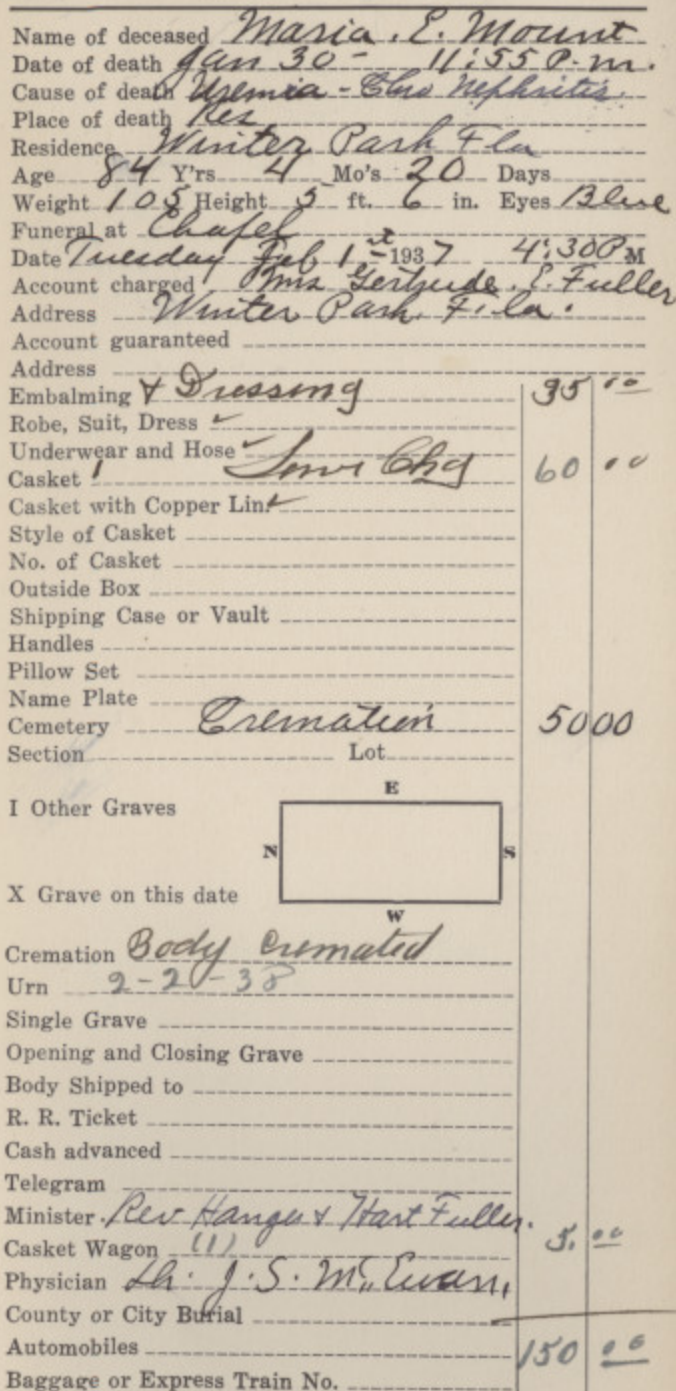 Name of deceased Maria. E. Mount
Date of death Jan 30 - 11:55 P.m.
Cause of death Uremia - Chro Nephritis
Place of death Res
Residence Winter Park Fla
Age 84 Y'rs 4 Mo's 20 Days
Weight 105 Height 5 ft. 6 in. Eyes Blue
Funeral at Chapel
Date Tuesday Feb 1st 1937 4:30 P M
Account charged Mrs Gertrude. E. Fuller
Address Winter Park. Fla.
Account guaranteed
Address
Embalming & Dressing 35 00
Robe, Suit, Dress ✓
Underwear and Hose ✓
Casket 1 Serv Chg 60 00
Casket with Copper Lin. ✓
Style of Casket
No. of Casket
Outside Box
Shipping Case or Vault
Handles
Pillow Set
Name Plate
Cemetery Cremation 50 00
Section Lot
E
I Other Graves
N S
X Grave on this date
W
Cremation Body Cremated
Urn 2-2-38
Single Grave
Opening and Closing Grave
Body Shipped to
R. R. Ticket
Cash advanced
Telegram
Minister. Rev Hanger & Hart Fuller.
Casket Wagon (1) 5. 00
Physician Dr. J. S. McEwan,
County or City Burial
Automobiles 150 00
Baggage or Express Train No.